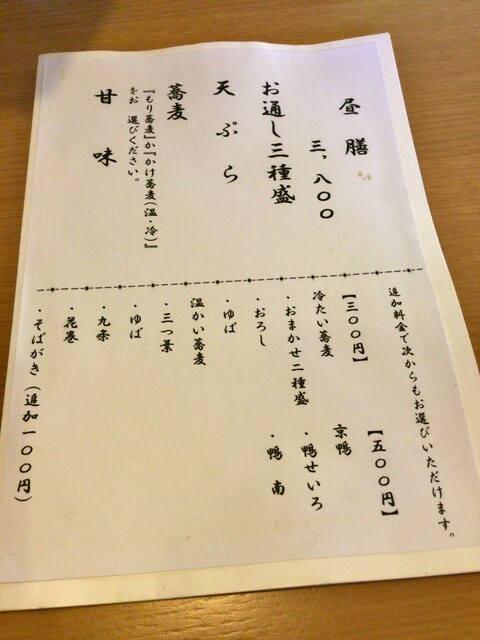 昼膳
三、八〇〇
お通し三種盛
天ぷら
蕎麦
『もり蕎麦』か『かけ蕎麦(温・冷)』
をお 選びください。
甘味
追加料金で次からもお選びいただけます。
【三〇〇円】
冷たい蕎麦
・おまかせ二種盛
・おろし
・ゆば
温かい蕎麦
・三つ葉
・ゆば
・九条
・花巻
・そばがき(追加一〇〇円)
【五〇〇円】
京鴨
・鴨せいろ
・鴨南